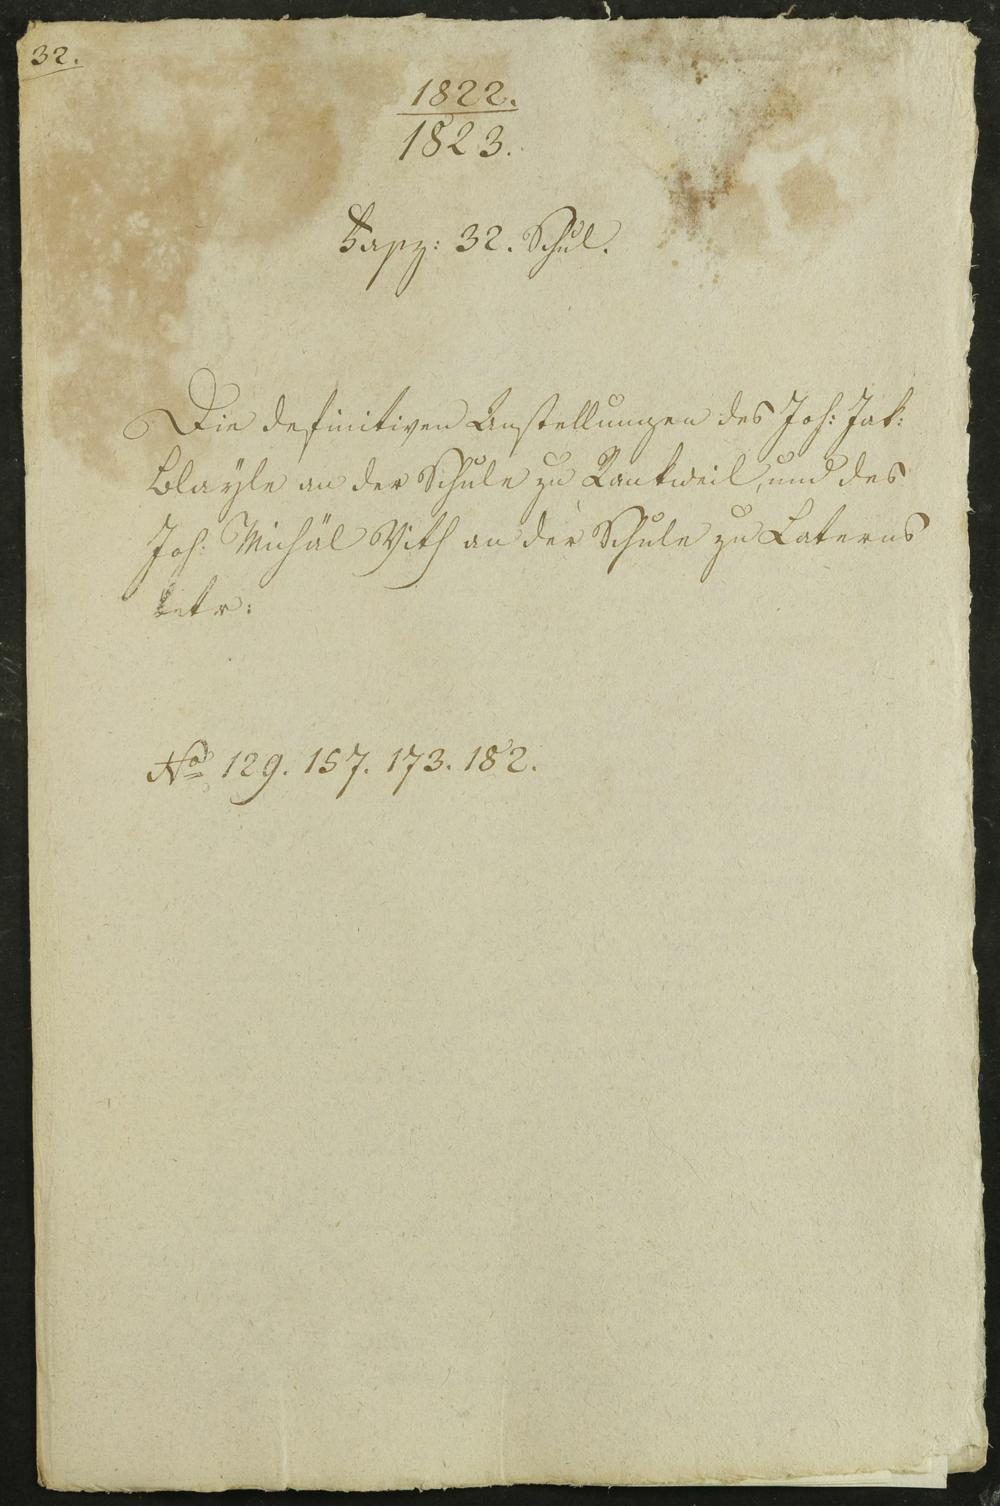 32.
1822.
1823.
Fasz: 32. Schul.
Die definitiven Anstellungen des Joh: Jak:
Blayle an der Schule zu Rankweil, und des
Joh: Michäl Vith an der Schule zu Laterns
betr:
No 129. 157. 173. 182.